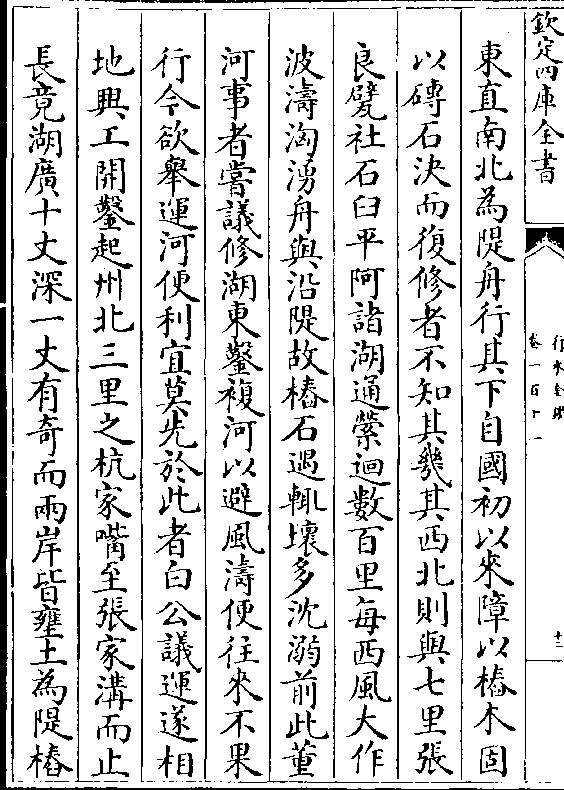 欽定四庫全書
行水金鑑
卷一百十一
十二
東直南北為隄舟行其下自國初以來障以樁木固
以磚石決而復修者不知其幾其西北則與七里張
良甓社石臼平阿諸湖通縈迴數百里每西風大作
波濤洶湧舟與沿隄故樁石遇輒壞多沈溺前此董
河事者嘗議修湖東鑿複河以避風濤便往來不果
行今欲舉運河便利宜莫先於此者白公議運遂相
地興工開鑿起州北三里之杭家嘴至張家溝而止
長竟湖廣十丈深一丈有奇而兩岸皆壅土為隄樁